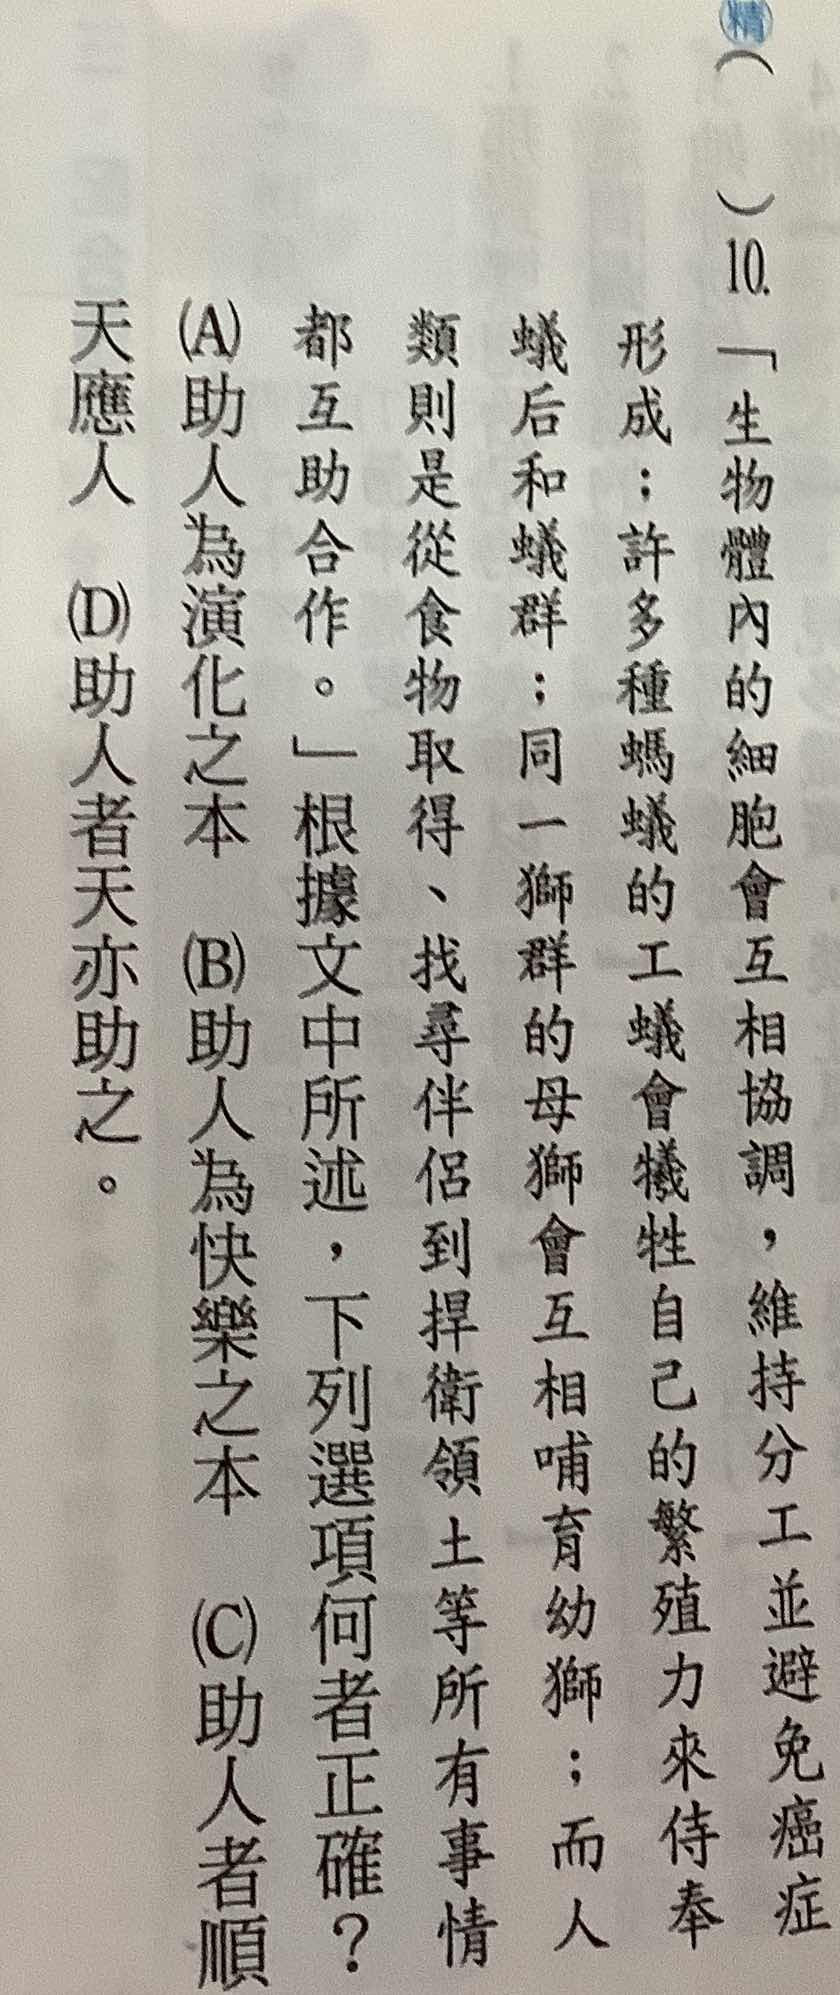 精
( )10.「生物體內的細胞會互相協調,維持分工並避免癌症
形成;許多種螞蟻的工蟻會犧牲自己的繁殖力來侍奉
蟻后和蟻群;同一獅群的母獅會互相哺育幼獅;而人
類則是從食物取得、找尋伴侶到捍衛領土等所有事情
都互助合作。」根據文中所述,下列選項何者正確?
(A)助人為演化之本 (B)助人為快樂之本 (C)助人者順
天應人 (D)助人者天亦助之。